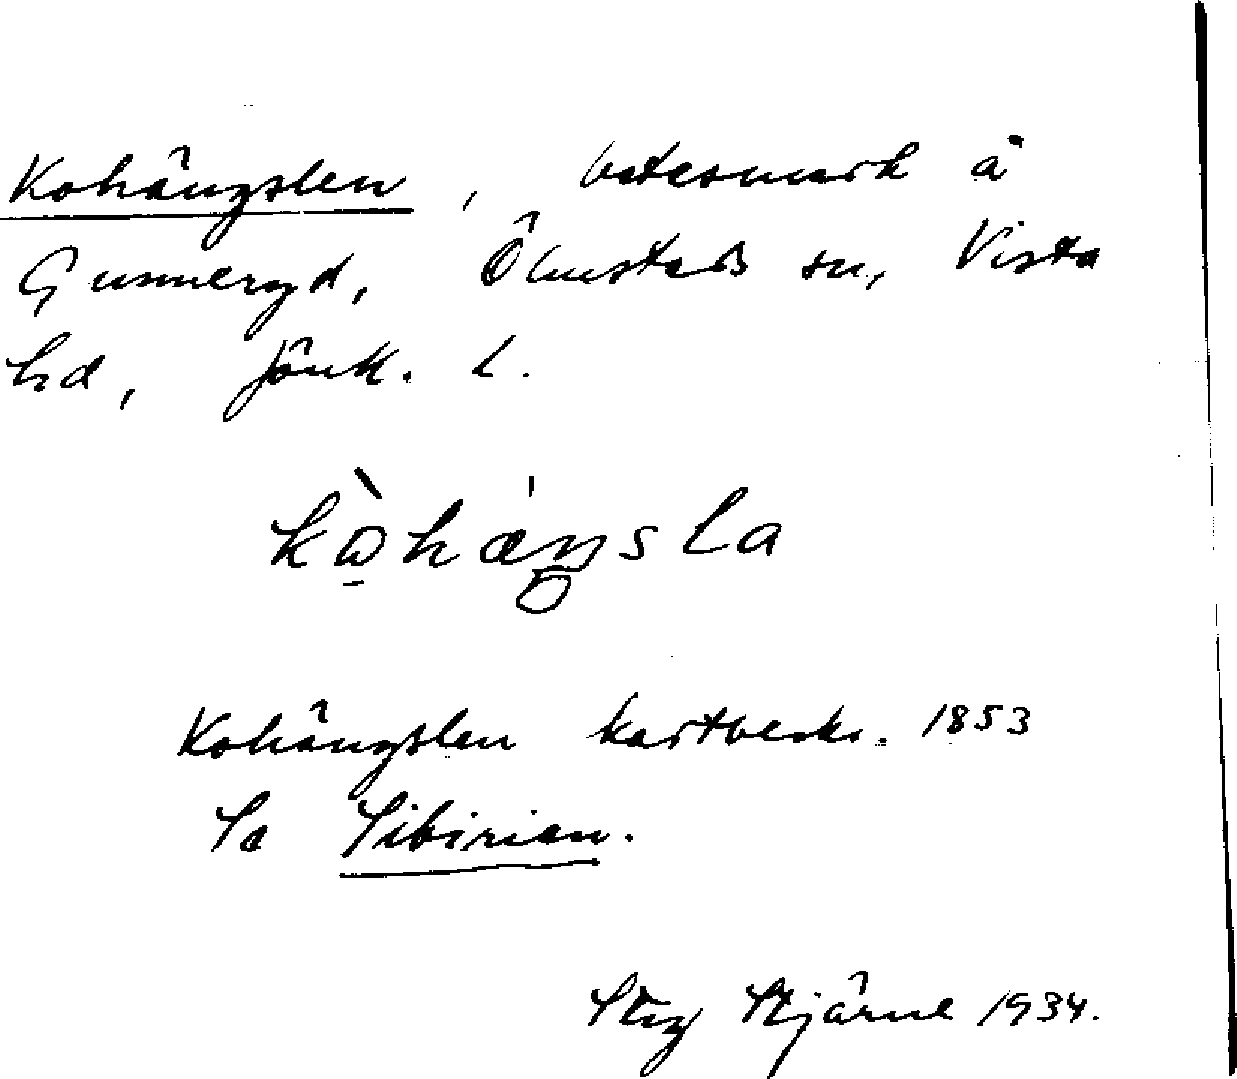 Kohängslen, betesmark å
Gunneryd, Ölmstads sn, Vista
hd, Jönk. l.
kòhǽŋsla
Kohängslen kartbeskr. 1853
Se Sibirien.
Stig Stjärne 1934.